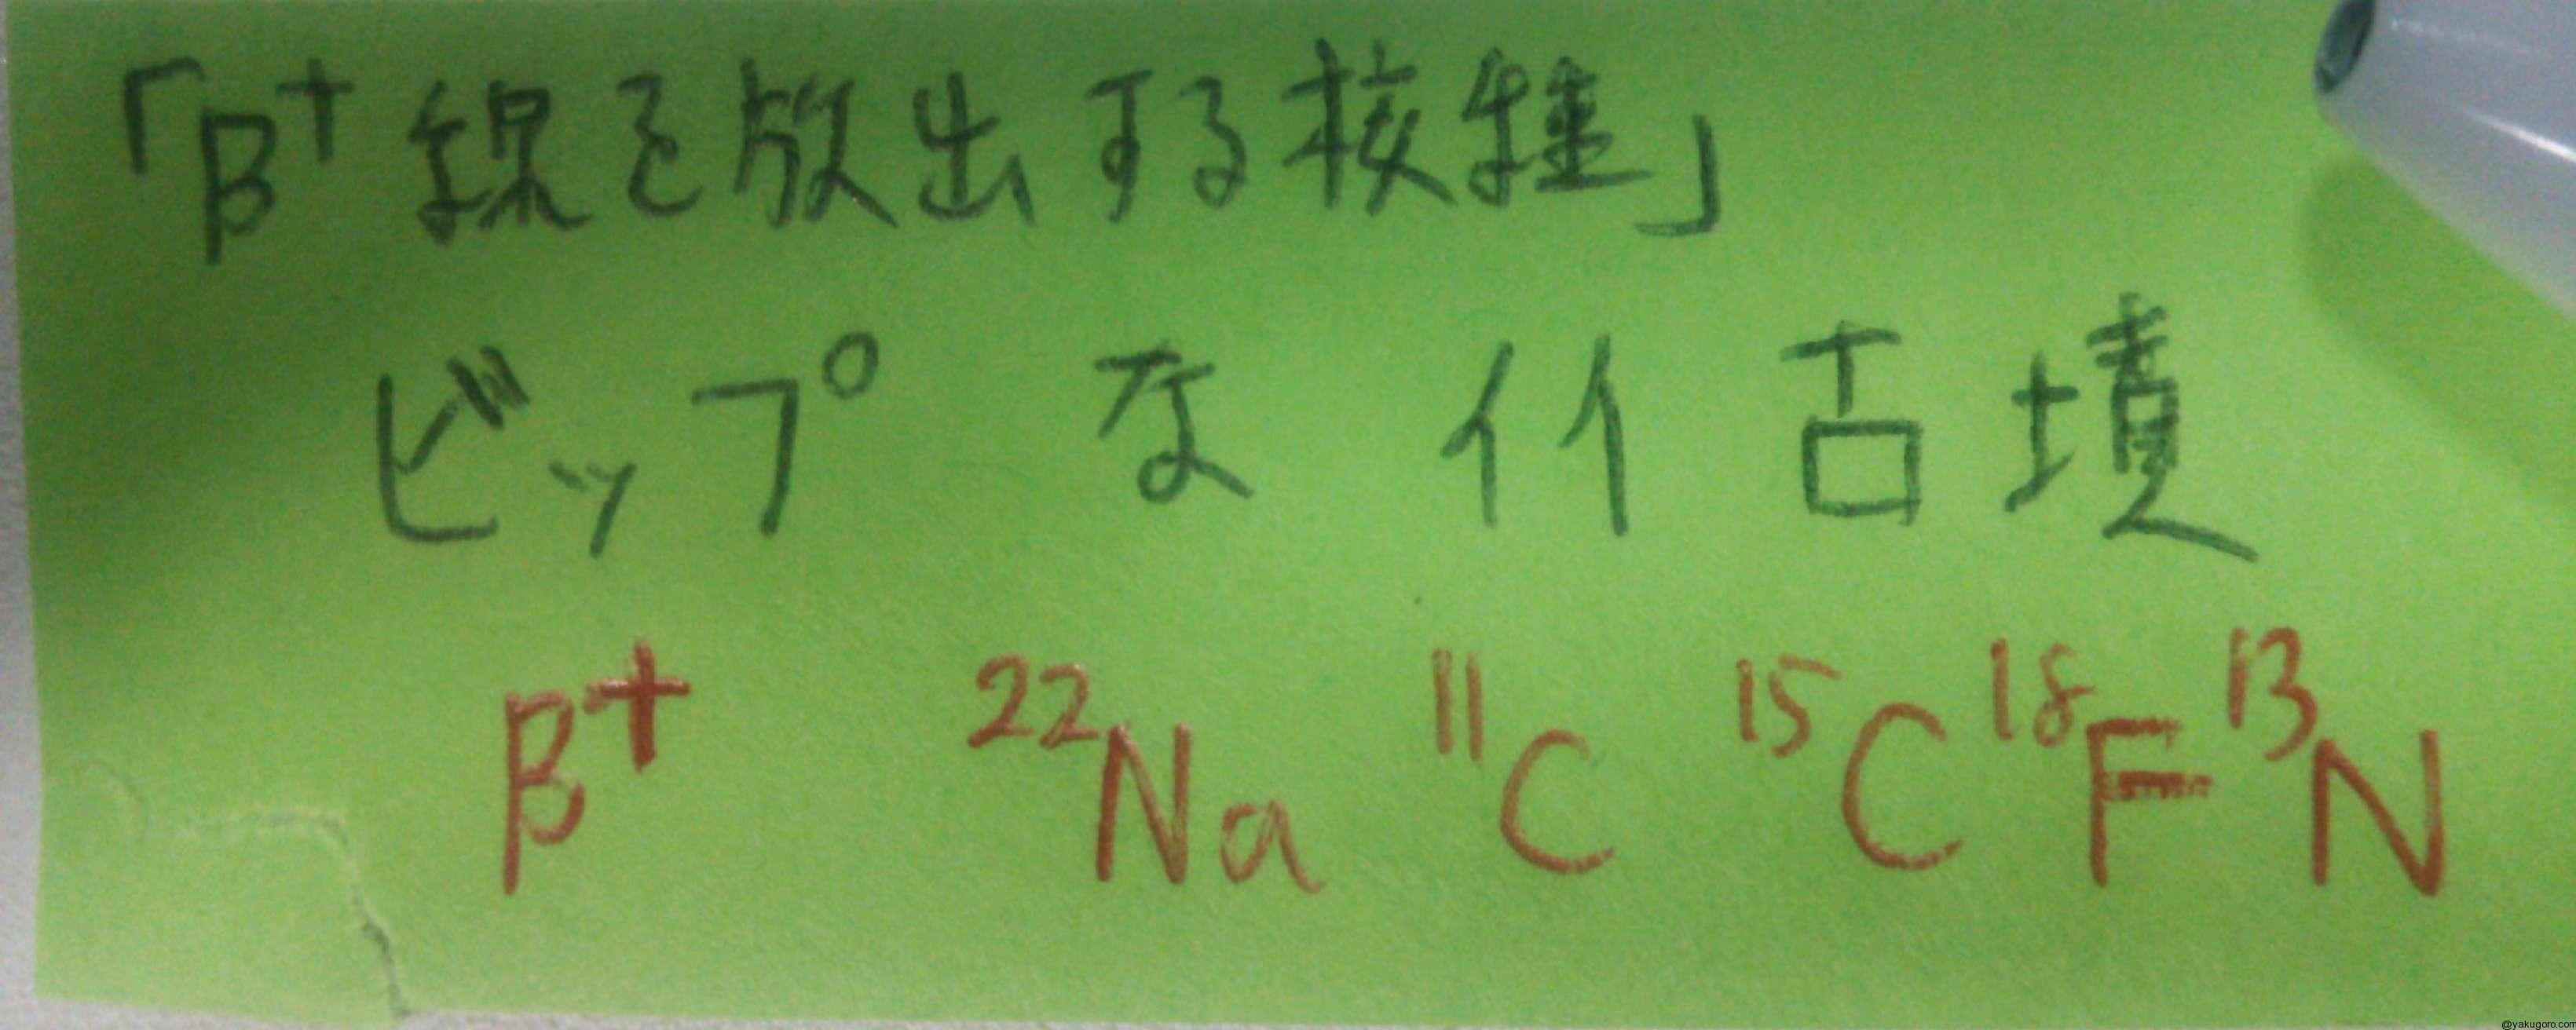 「β⁺線を放出する核種」
ビップ な 竹 古墳
β⁺ ²²Na ¹¹C ¹⁵C ¹⁸F ¹³N
@yakugoro.com